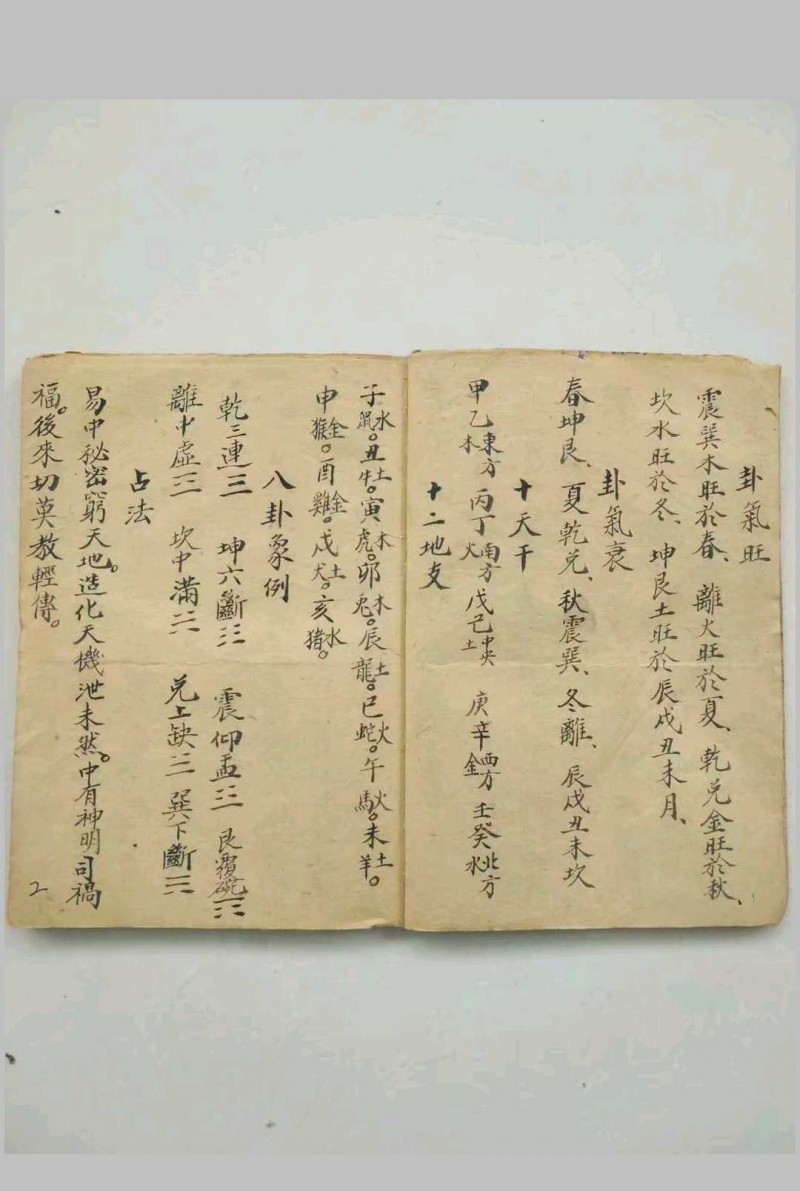 卦氣旺
震巽木旺於春、離火旺於夏、乾兌金旺於秋、
坎水旺於冬、坤艮土旺於辰戌丑未月、
卦氣衰
春坤艮、夏乾兌、秋震巽、冬離、辰戌丑未坎
十天干
甲乙東方木 丙丁南方火 戊己中央土 庚辛西方金 壬癸北方水
十二地支
子水鼠。丑土牛。寅木虎。卯木兎。辰土龍。巳火蛇。午火馬。未土羊。
申金猴。酉金雞。戌土犬。亥水猪。
八卦象例
乾三連☰ 坤六斷☷ 震仰盂☳ 艮覆碗☶
離中虛☲ 坎中滿☵ 兌上缺☱ 巽下斷☴
占法
易中秘密窮天地。造化天機泄未然。中有神明司禍
福。後來切莫教輕傳。
2